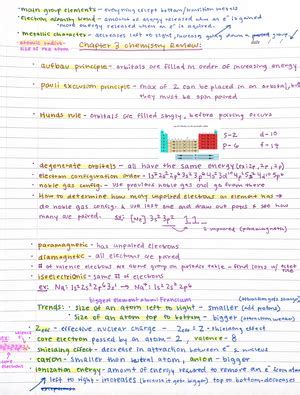 • main group elements - everything except bottom/transition metals
• Electron affinity trend - amount of energy released when an e⁻ is gained
• more energy released when an e⁻ is aquired.
• metallic character - decreases left to right, increases going down a group
atomic radius -
size of the atom
Chapter 3 Chemistry Review:
• aufbau principle - orbitals are filled in order of increasing energy
• pauli exclusion principle - max of 2 can be placed in an orbital, but
they must be spin paired
• Hunds rule - orbitals are filled singly, before pairing occurs
S-2 d-10
P-6 f-14
• degenerate orbitals - all have the same energy (ex: 2p, 2p, 2p)
• electron configuration order - 1s² 2s² 2p⁶ 3s² 3p⁶ 4s² 3d¹⁰ 4p⁶ 5s² 4d¹⁰ 5p⁶
• noble gas config. - use previous noble gas and go from there
• How to determine how many unpaired electrons an element has →
do noble gas config. & use last one and draw out boxes & see how
many are paired. ex: [Ne] 3s² 3p² 1 1 _
2 unpaired (paramagnetic)
• paramagnetic = has unpaired electrons
• diamagnetic - all electrons are paired
• # of valence electrons are above group on periodic table -
• isoelectronic = same # of electrons
ex: Na: 1s² 2s² 2p⁶ 3s¹ → Na⁺: 1s² 2s² 2p⁶
biggest element atom: Francium
Trends: • size of an atom left to right - smaller (add protons)
• size of an atom top to bottom - bigger
• Zeff - effective nuclear charge - Zeff = Z - shielding effect
• core electron = passed by an atom - 2, valence = 8
• shielding effect - decrease in attraction between e⁻ & nucleus
• cation - smaller than neutral atom, anion - bigger
• ionization energy - amount of energy required to remove an e⁻ from
left to right - increases top to bottom - decreases
core
electrons